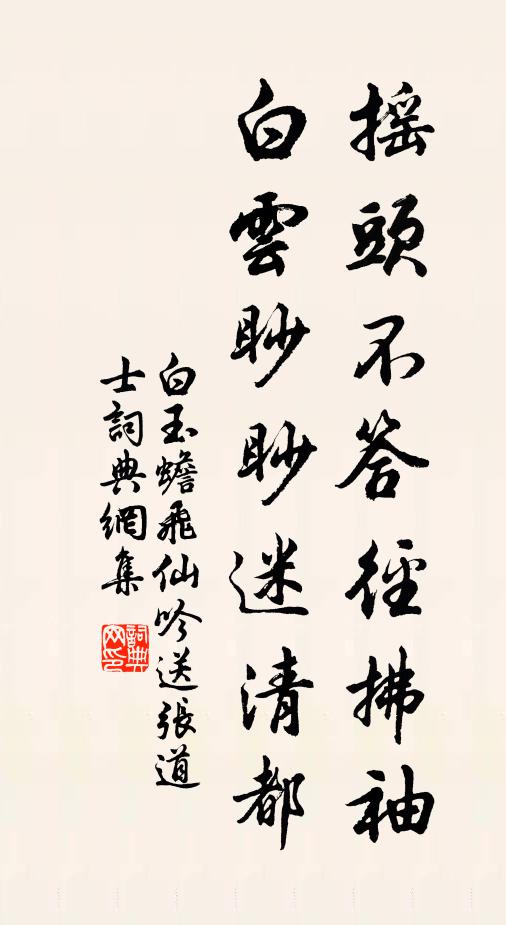 摇頭不答徑拂袖
白雲眇眇迷清都
白玉蟾飛仙吟送張道
士詞典網集
詞典
网印